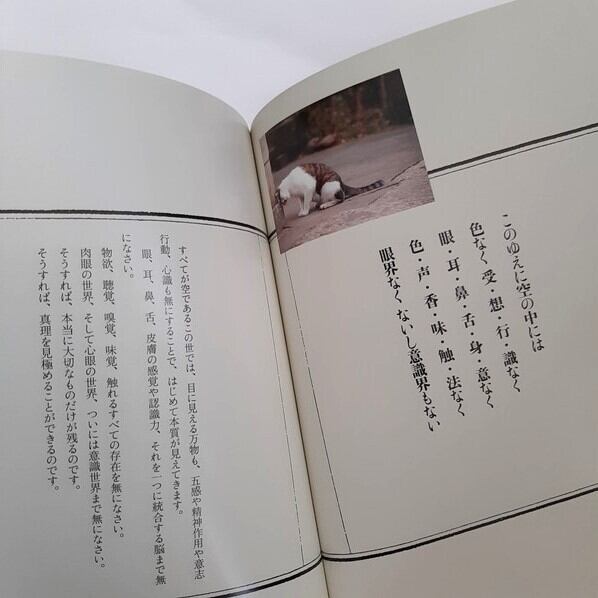 このゆえに空の中には
色なく、受・想・行・識なく
眼・耳・鼻・舌・身・意なく
色・声・香・味・触・法なく
眼界なく、ないし意識界もない
すべてが空であるこの世では、目に見える万物も、五感や精神作用や意志
行動、心識も無にすることで、はじめて本質が見えてきます。
眼、耳、鼻、舌、皮膚の感覚や認識力、それを一つに統合する脳まで無
になさい。
物欲、聴覚、嗅覚、味覚、触れるすべての存在を無になさい。
肉眼の世界、そして心眼の世界、ついには意識世界まで無になさい。
そうすれば、本当に大切なものだけが残るのです。
そうすれば、真理を見極めることができるのです。